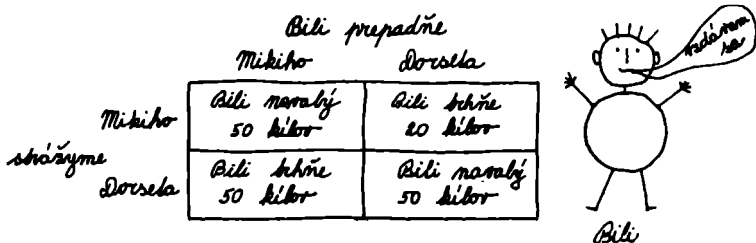 Bili prepadňe
Mikiho Dorseta
strážyme
Mikiho
Bili narabý
50 kílov
Bili trhňe
20 kílov
Dorseta
Bili trhňe
50 kílov
Bili narabý
50 kílov
vzdávam
sa
Bili